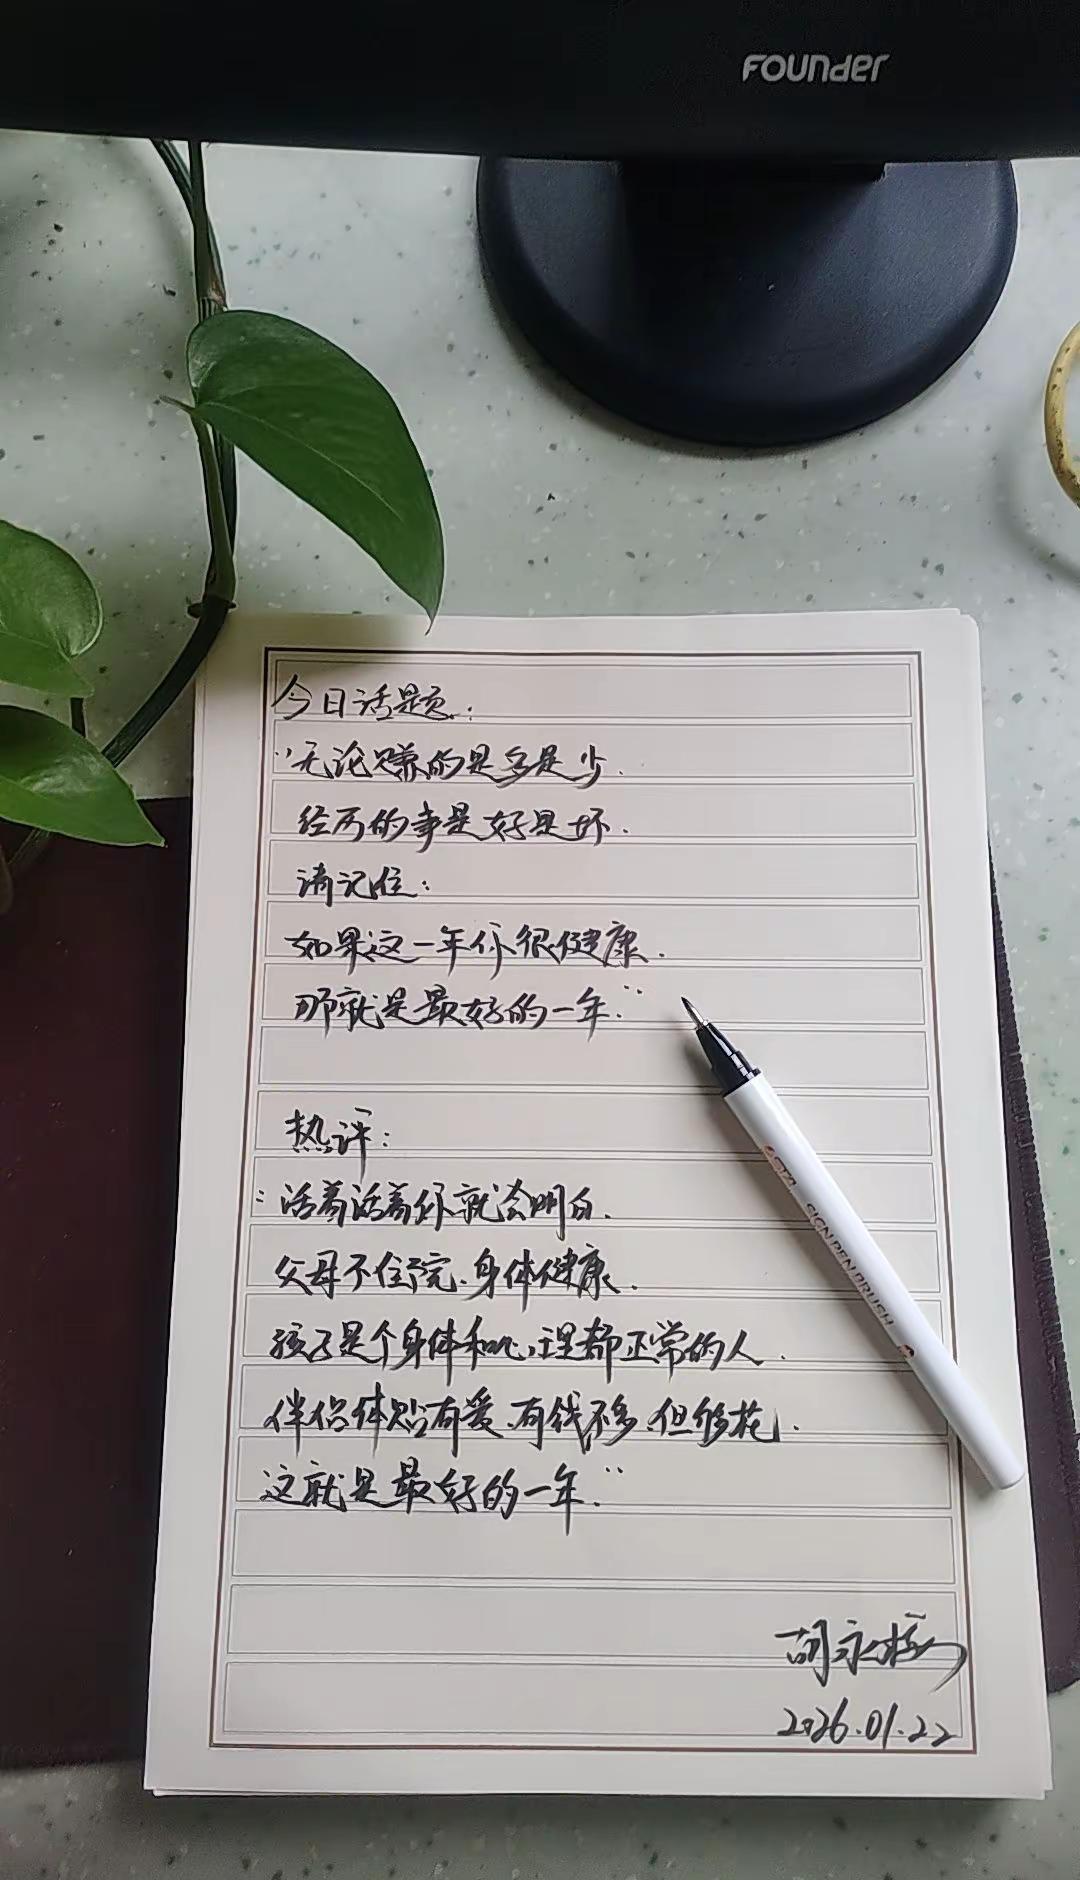 FOUNDER
今日话题:
“无论赚的是多是少.
经历的事是好是坏.
请记住:
如果这一年你很健康.
那就是最好的一年.”
热评:
“活着活着你就会明白.
父母不住院.身体健康.
孩子是个身体和心理都正常的人.
伴侣体贴有爱.有钱不多.但够花.
这就是最好的一年.”
胡永
2026.01.22
SIGN PEN BRUSH